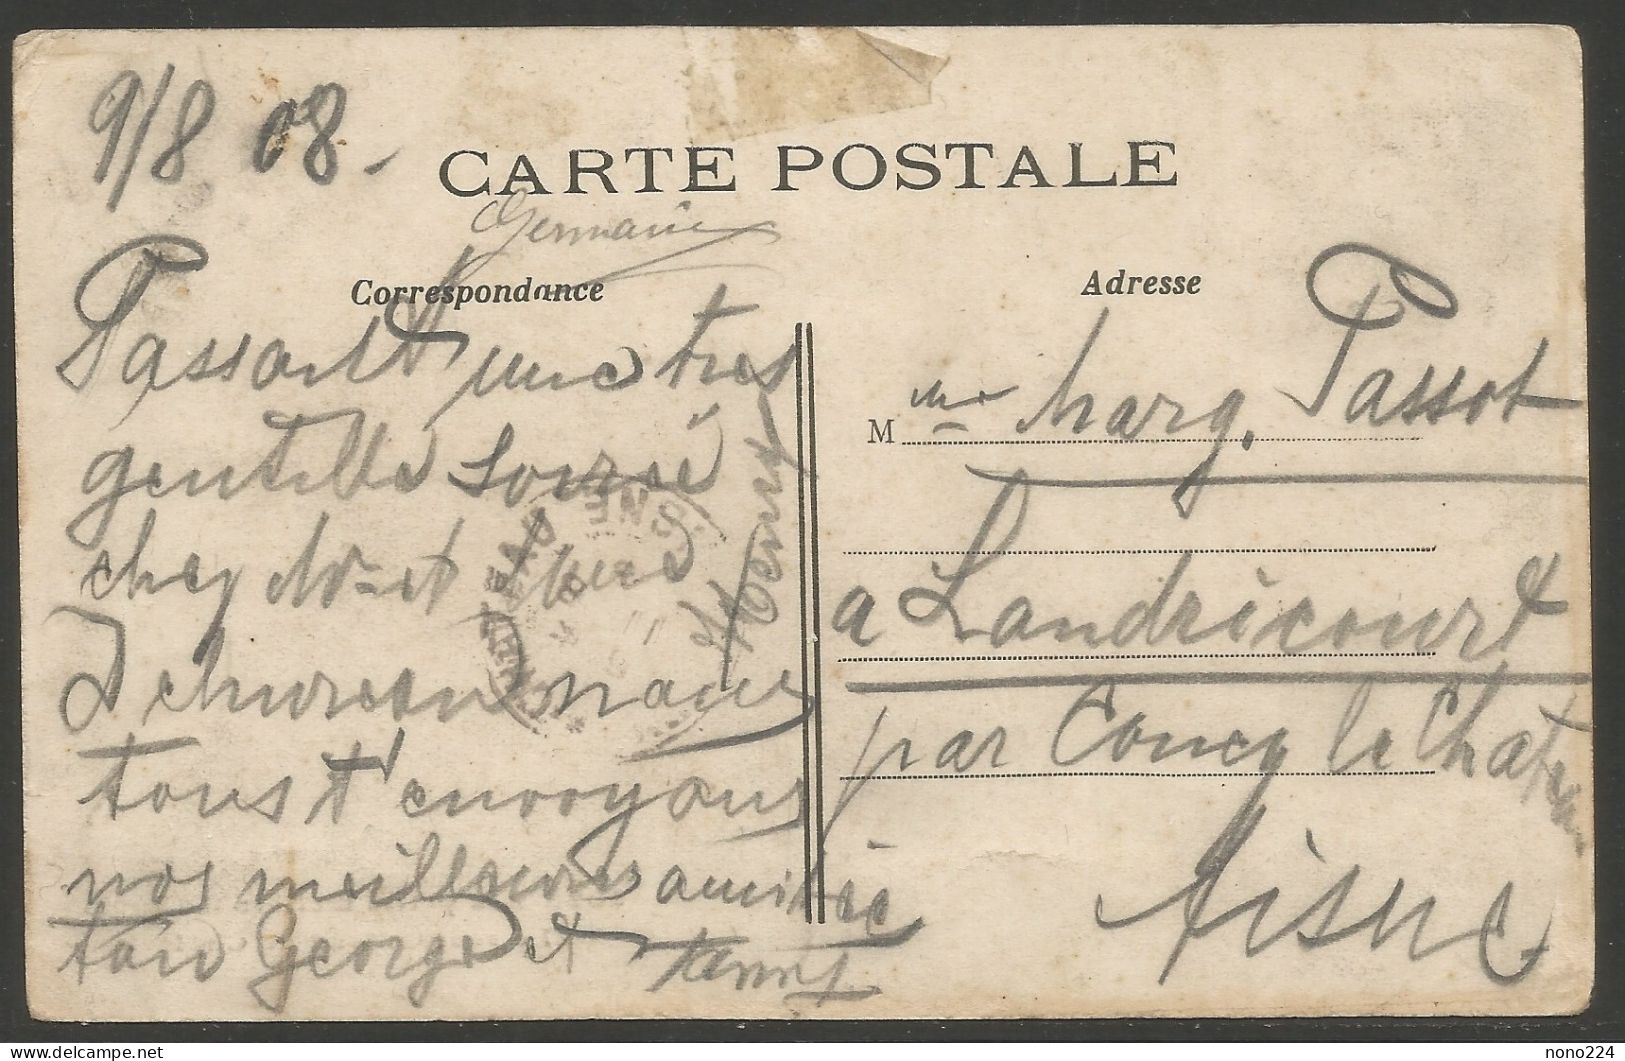 9/8 08 -
CARTE POSTALE
Germaine
Correspondance
Adresse
Passant une très
gentille soirée
chez Mr et Mme
nous
tous t'envoyons
nos meilleures amitiés
ton George et
Henry
M me Marg. Passot
a Landricourt
par Coucy le Chateau
Aisne
delcampe.net
nono224